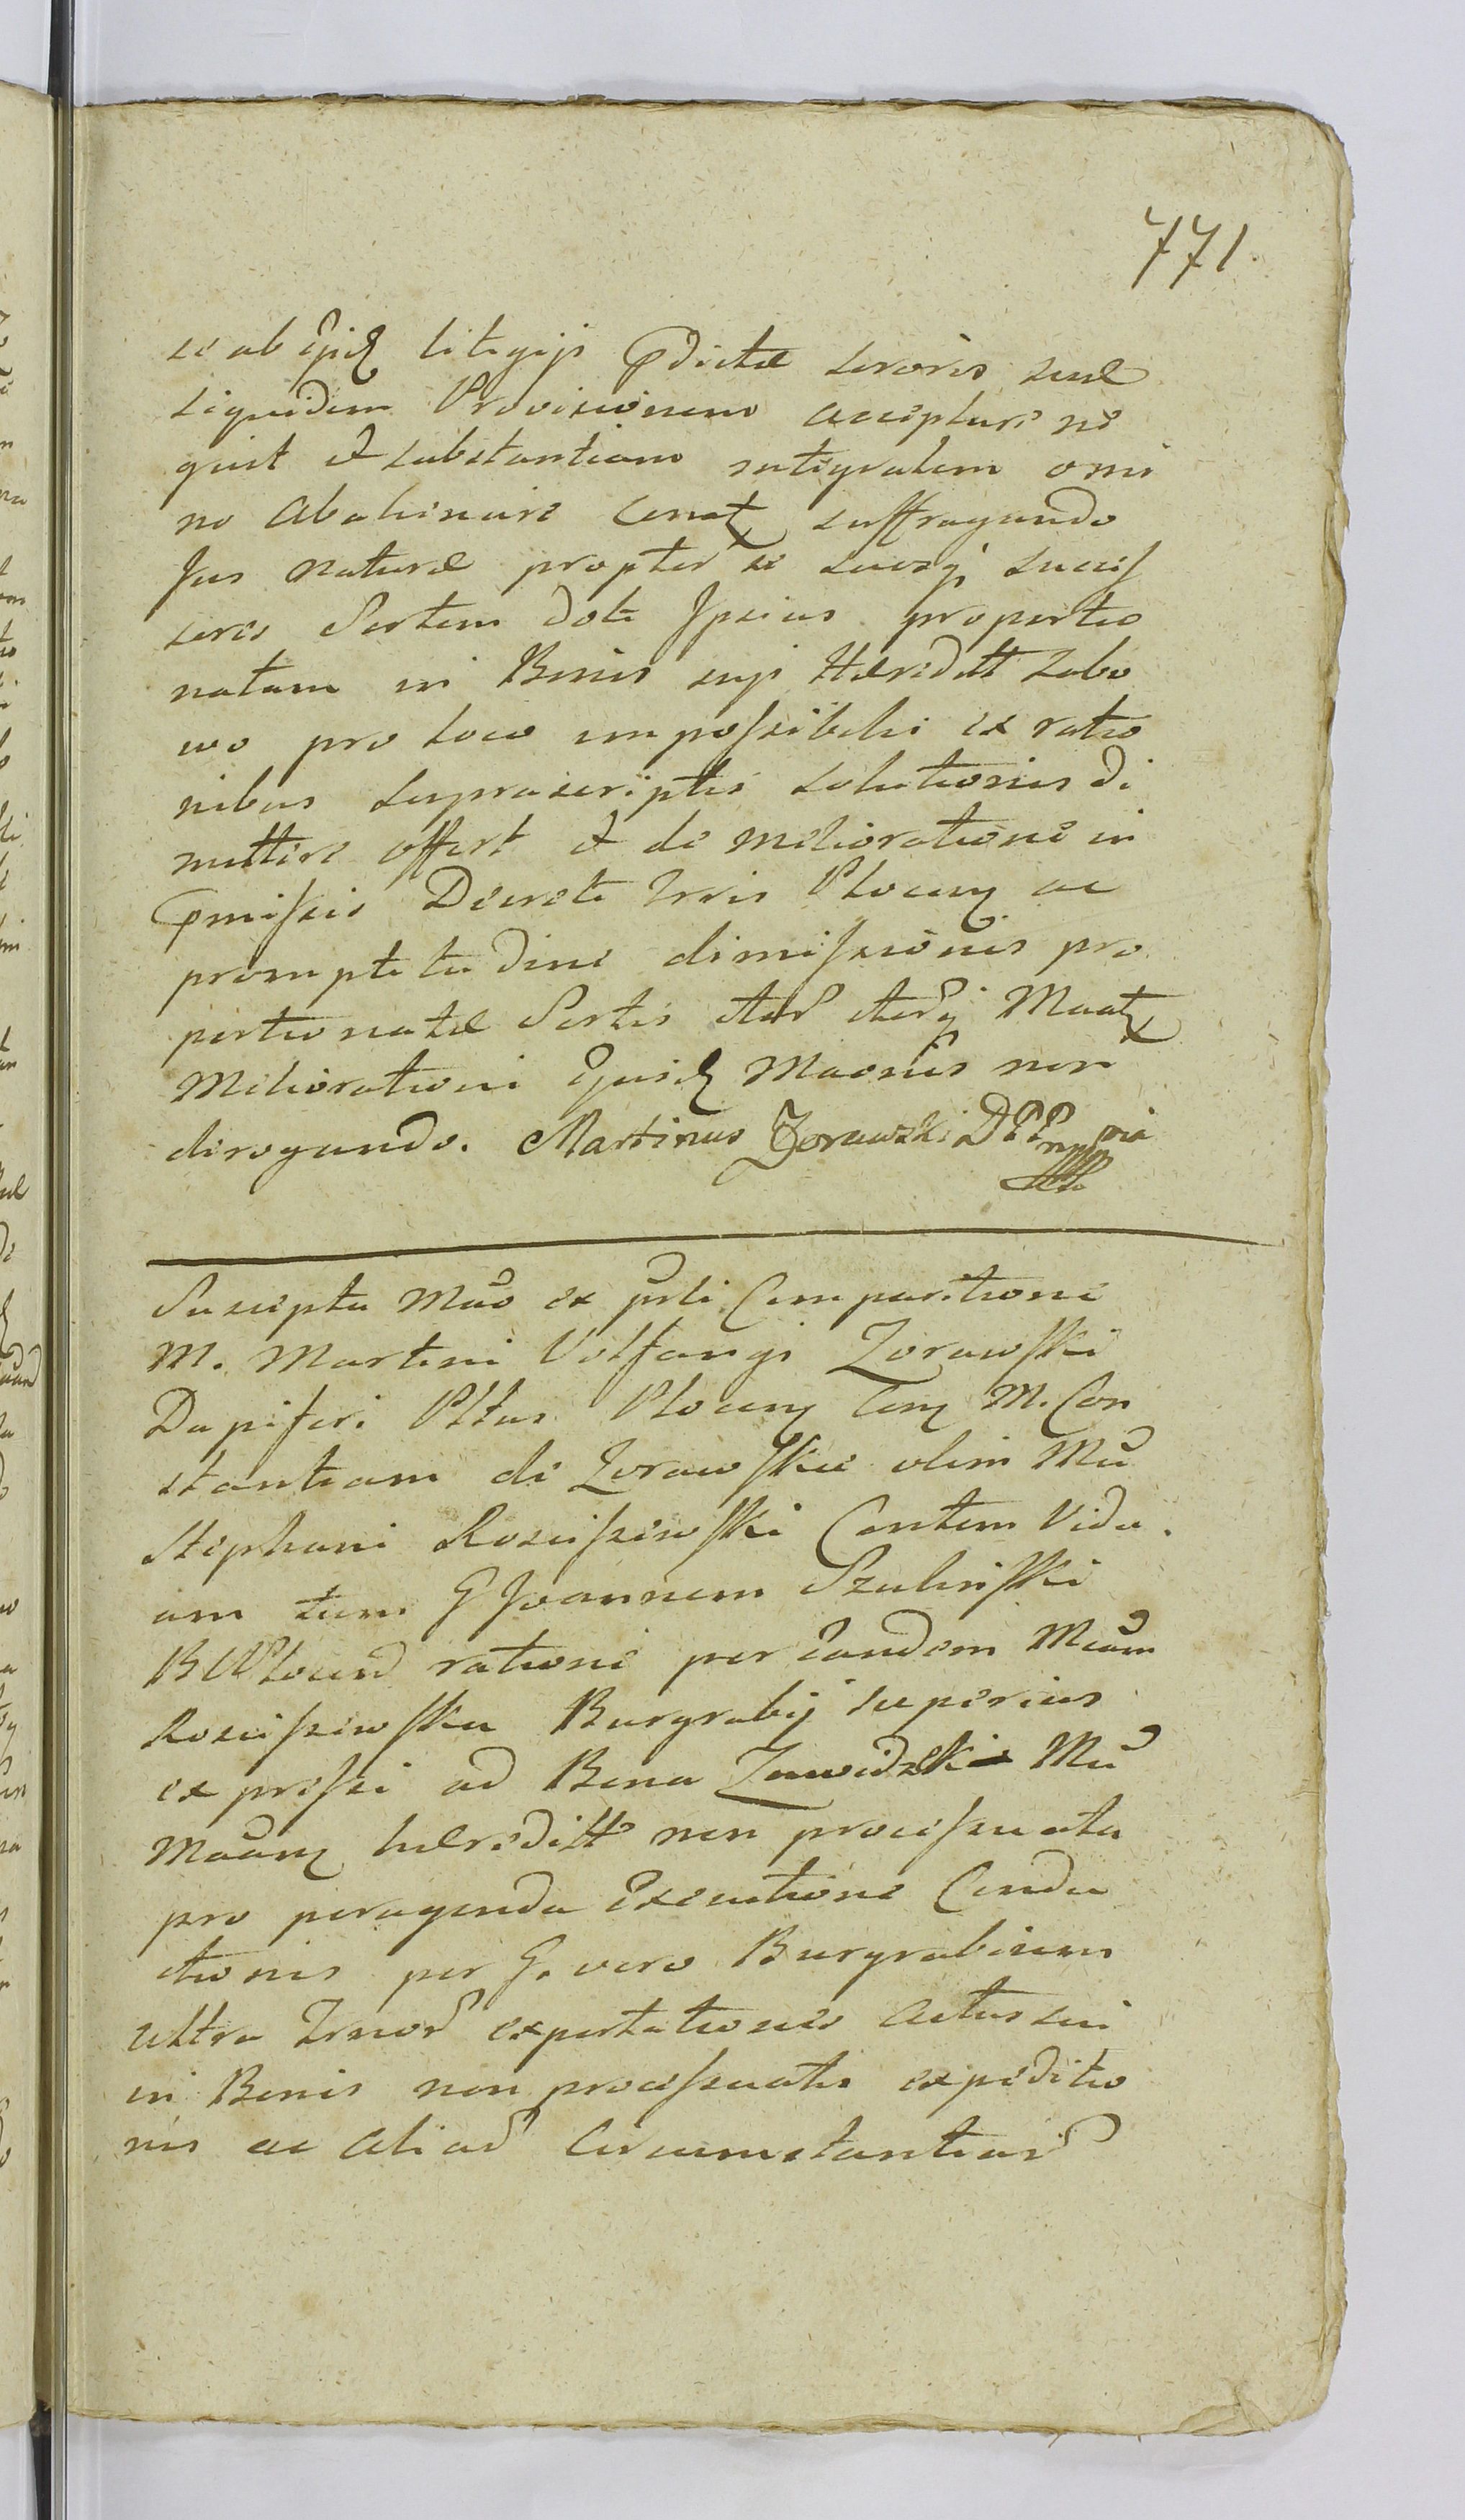 771.
se ab ejusd litigijs Pdictæ sororis suæ
siquidem Provisionem accepture ne
quit et substantiam integralem omi
no abalienare conat suffragando
Jus naturæ propter se suosq succes
sores Sortem doti Ipsius proportio
natam in Bonis suis Hæreditt Zabo
wo pro loco impossibilis ex ratio
nibus suprascriptis solutionis di
mittere offert et de melioratione in
Pmissis Decreti Trris Plocen ac
promptitudine dimissionis pro
portionatæ Sortis iter iterq Maat
Meliorationi Ejusd Maonis non
derogando. Martinus Zorawski DPP mppria
Suscepta Mao ex psti Comparitione
M. Martini Volfangi Zorawski
Dapiferi Pltus Plocen Cons M. Con
stantiam de Zorawskie olim Mci
Stephani Rosciszewski Contem Vidu
am tum G Joannem Szulinski
B C Plocens ratione per eandem Mcam
Rosciszewska Burgrabij superius
expressi ad Bona Zawidzkie Mci
Maan hæreditt non processuata
pro peragenda Executione Condu
ctionis per G. vero Burgrabium
ultra Tenor exportationis actus sui
in Bonis non processuatis expeditio
nis ac aliar Circumstantiar